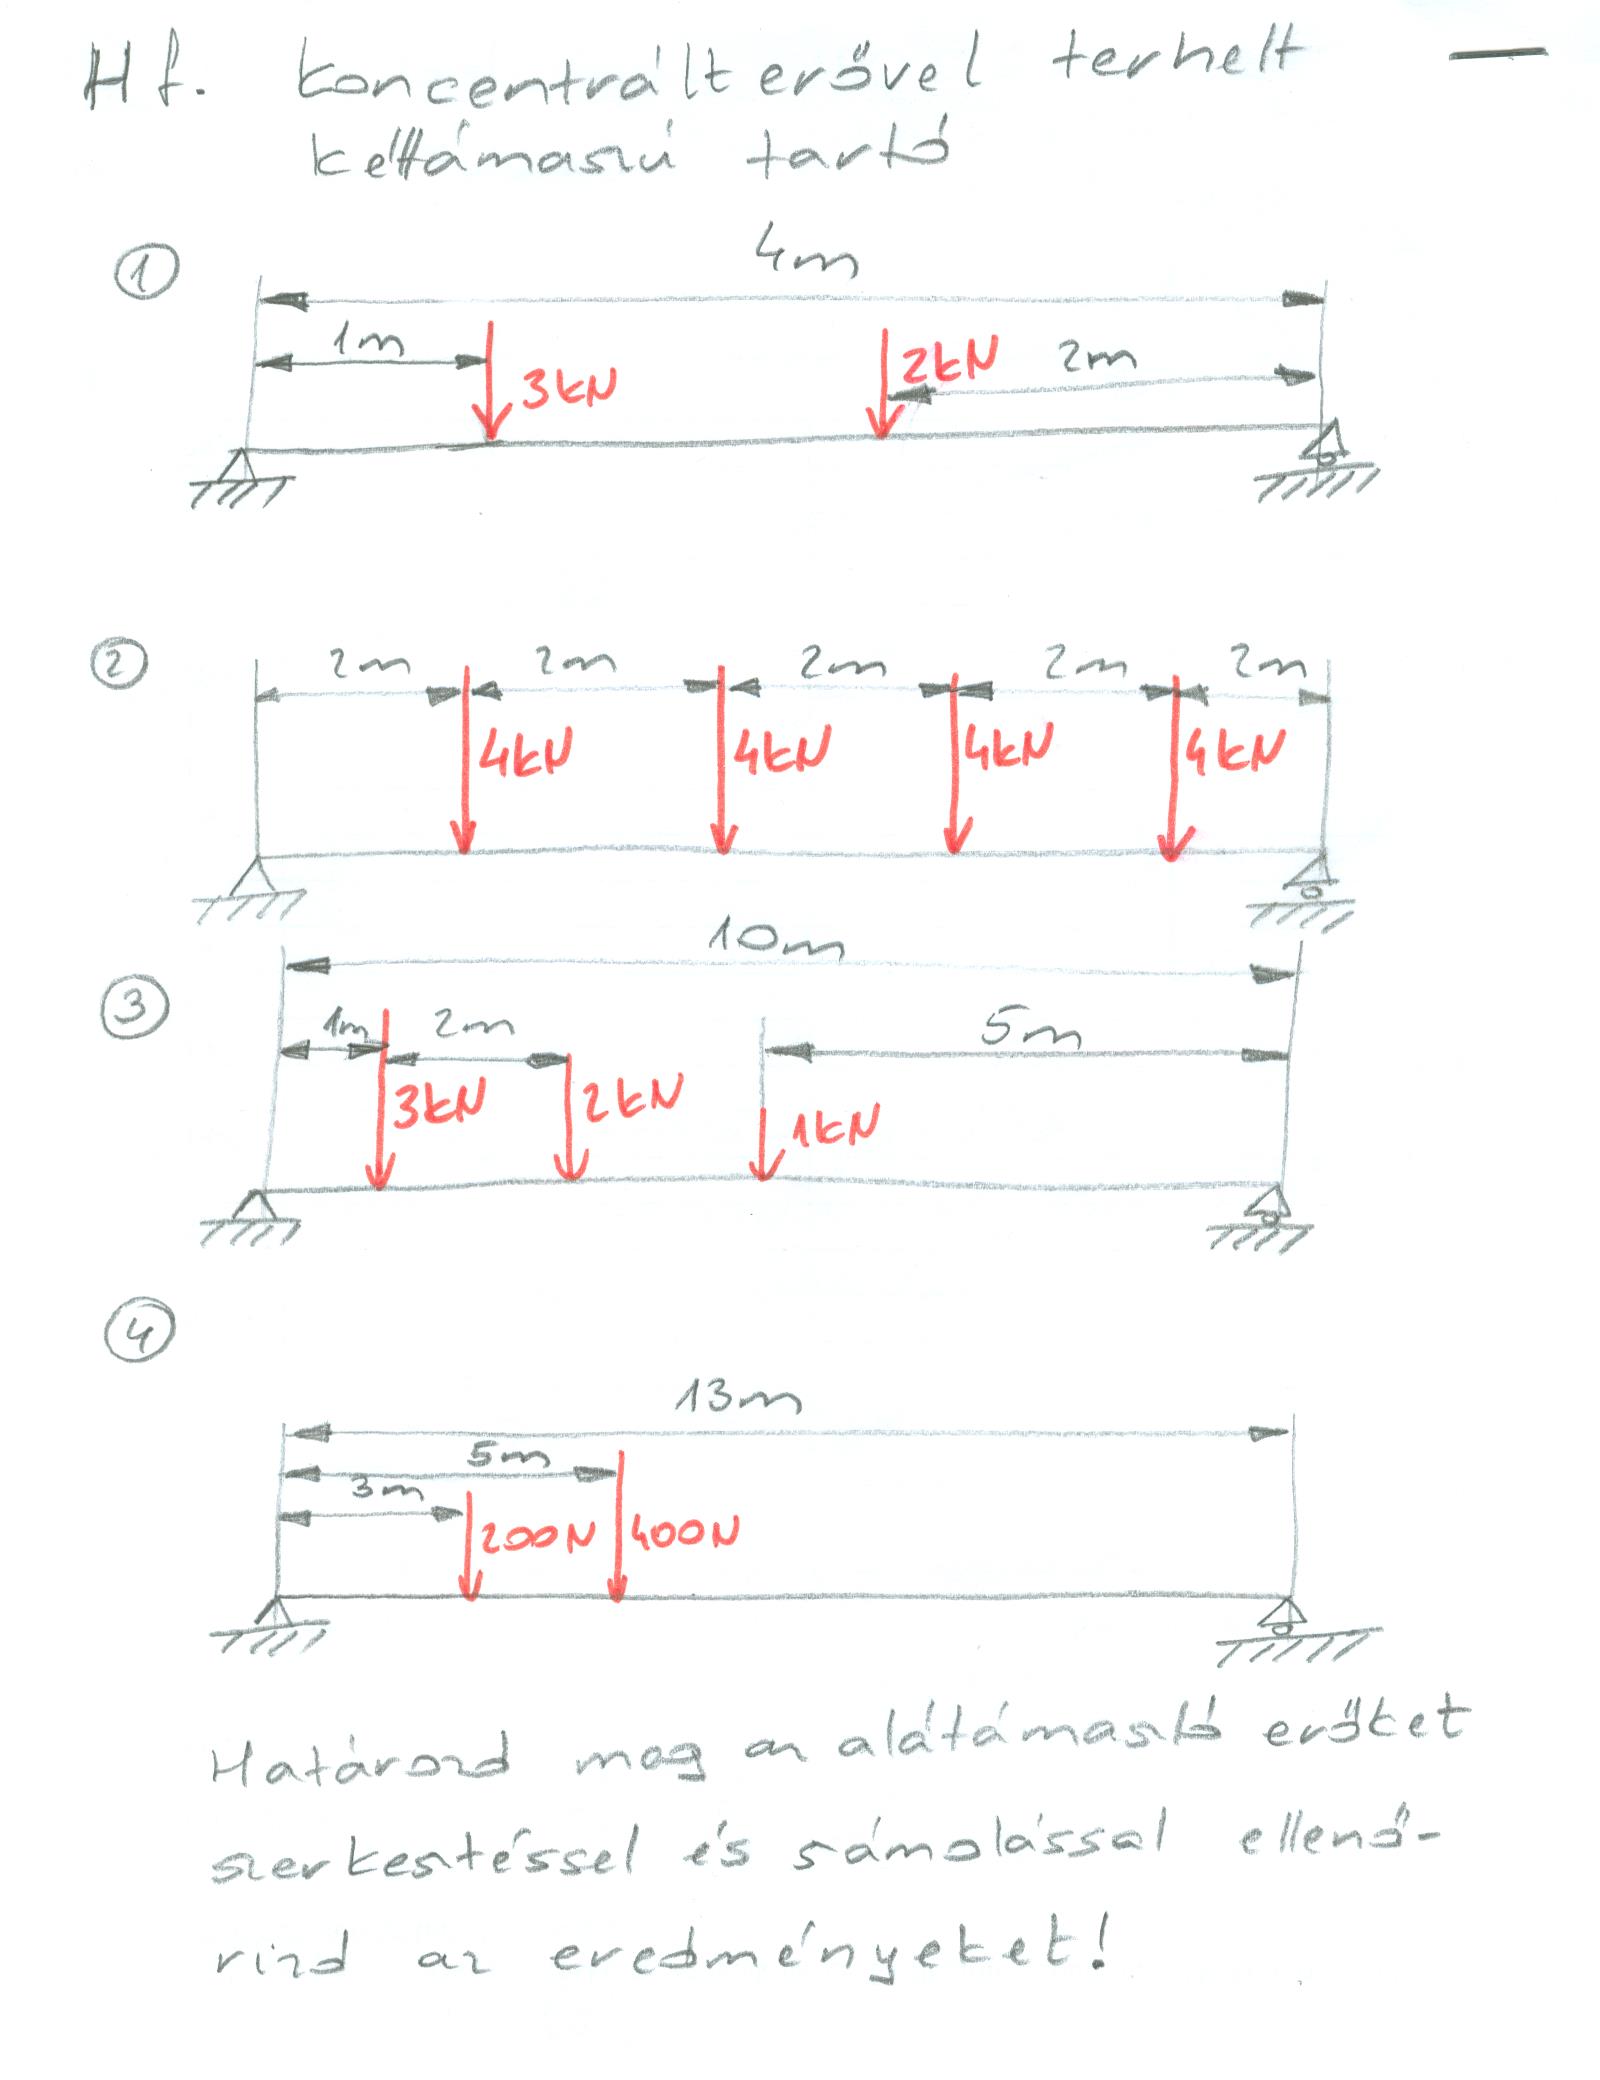 Hf. Koncentrált erővel terhelt
kéttámaszú tartó
1
4m
1m
3kN
2kN
2m
2
2m 2m 2m 2m 2m
4kN 4kN 4kN 4kN
10m
3
1m 2m 5m
3kN 2kN 1kN
4
13m
5m
3m
200N 400N
Határozd meg az alátámasztó erőket
szerkesztéssel és számolással ellenő-
rizd az eredményeket!